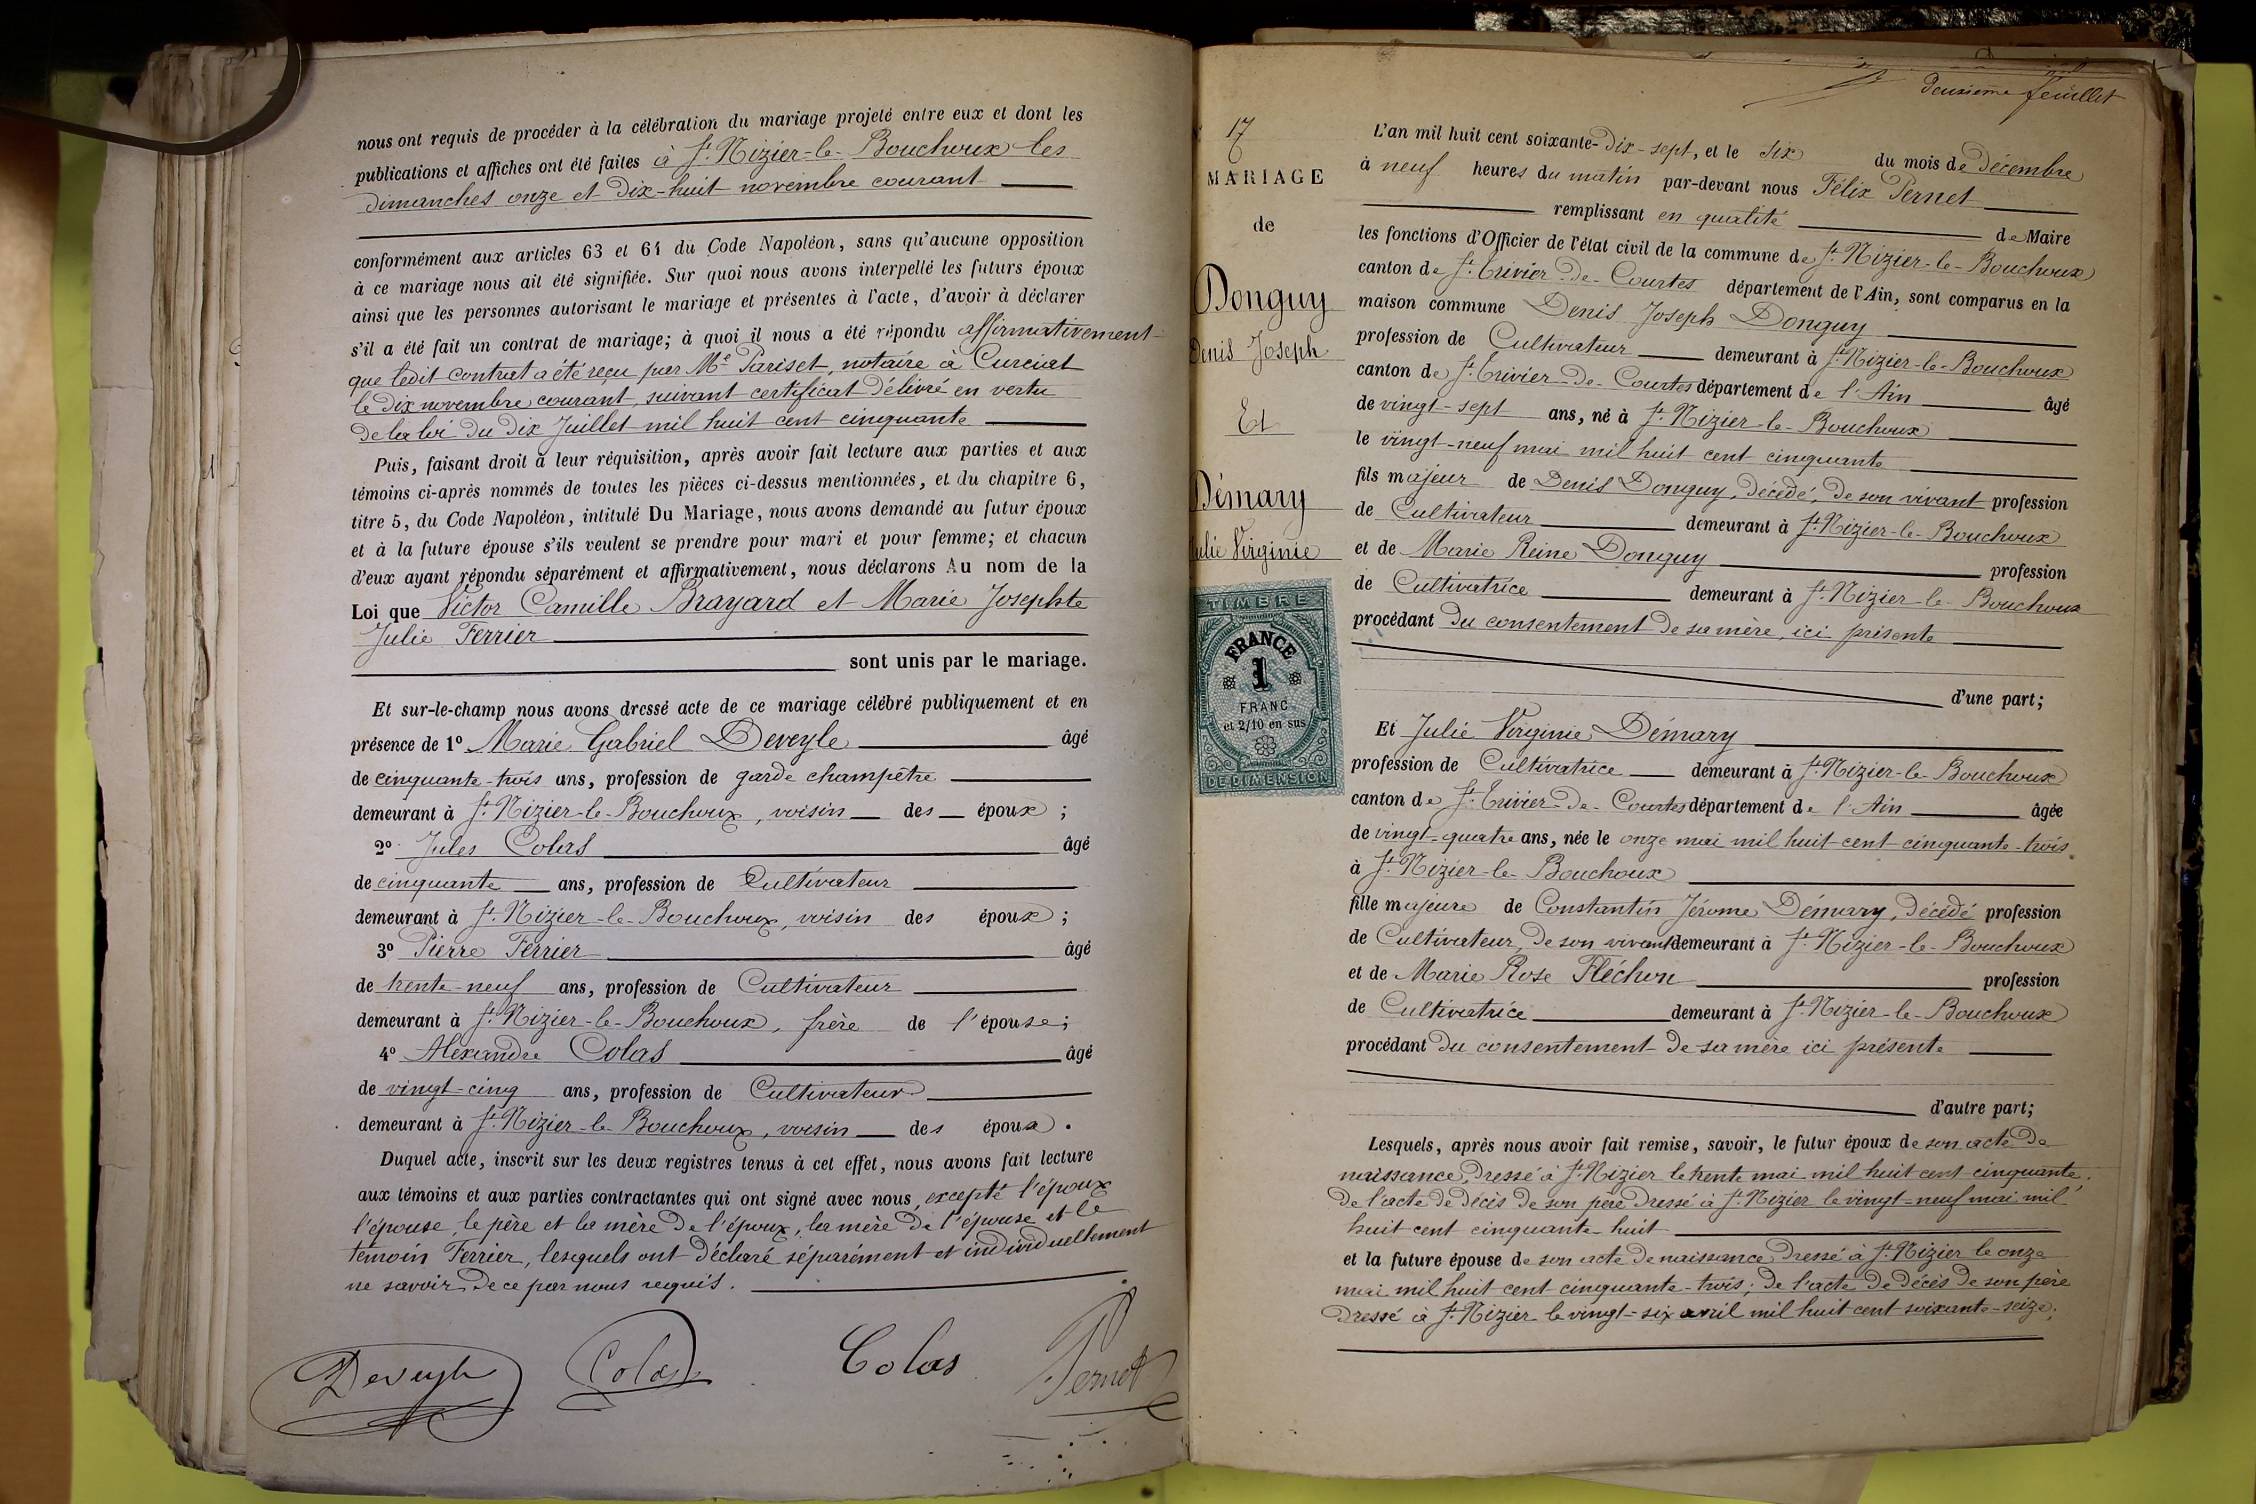 nous ont requis de procéder à la célébration du mariage projeté entre eux et dont les
publications et affiches ont été faites à St. Nizier-le-Bouchoux les
dimanches onze et dix-huit novembre courant
conformément aux articles 63 et 64 du Code Napoléon, sans qu'aucune opposition
à ce mariage nous ait été signifiée. Sur quoi nous avons interpellé les futurs époux
ainsi que les personnes autorisant le mariage et présentes à l'acte, d'avoir à déclarer
s'il a été fait un contrat de mariage; à quoi il nous a été répondu affirmativement
que ledit contrat a été reçu par Me Pariset, notaire à Curciat
le dix novembre courant, suivant certificat délivré en vertu
de la loi du dix Juillet mil huit cent cinquante
Puis, faisant droit à leur réquisition, après avoir fait lecture aux parties et aux
témoins ci-après nommés de toutes les pièces ci-dessus mentionnées, et du chapitre 6,
titre 5, du Code Napoléon, intitulé Du Mariage, nous avons demandé au futur époux
et à la future épouse s'ils veulent se prendre pour mari et pour femme; et chacun
d'eux ayant répondu séparément et affirmativement, nous déclarons Au nom de la
Loi que Victor Camille Brayard et Marie Josephte
Julie Ferrier
sont unis par le mariage.
Et sur-le-champ nous avons dressé acte de ce mariage célébré publiquement et en
présence de 1º Marie Gabriel Deveyle âgé
de cinquante-trois ans, profession de garde champêtre
demeurant à St. Nizier-le-Bouchoux, voisin des époux;
2º Jules Colas âgé
de cinquante ans, profession de Cultivateur
demeurant à St. Nizier-le-Bouchoux, voisin des époux;
3º Pierre Ferrier âgé
de trente-neuf ans, profession de Cultivateur
demeurant à St. Nizier-le-Bouchoux, frère de l'épouse;
4º Alexandre Colas âgé
de vingt-cinq ans, profession de Cultivateur
demeurant à St. Nizier-le-Bouchoux, voisin des époux.
Duquel acte, inscrit sur les deux registres tenus à cet effet, nous avons fait lecture
aux témoins et aux parties contractantes qui ont signé avec nous, excepté l'époux
l'épouse, le père et la mère de l'époux, la mère de l'épouse et le
témoin Ferrier, lesquels ont déclaré séparément et individuellement
ne savoir de ce par nous requis.
Deveyle Colas Colas Pernet
Deuxième feuillet
17
MARIAGE
de
Donguy
Denis Joseph
Et
Démary
Julie Virginie
TIMBRE
FRANCE
1
FRANC
et 2/10 en sus
DE DIMENSION
L'an mil huit cent soixante-dix-sept, et le six du mois de Décembre
à neuf heures du matin par-devant nous Félix Pernet
remplissant en qualité de Maire
les fonctions d'Officier de l'état civil de la commune de St. Nizier-le-Bouchoux
canton de St. Trivier-de-Courtes département de l'Ain, sont comparus en la
maison commune Denis Joseph Donguy
profession de Cultivateur demeurant à St. Nizier-le-Bouchoux
canton de St. Trivier-de-Courtes département de l'Ain âgé
de vingt-sept ans, né à St. Nizier-le-Bouchoux
le vingt-neuf mai mil huit cent cinquante
fils majeur de Denis Donguy, décédé, de son vivant profession
de Cultivateur demeurant à St. Nizier-le-Bouchoux
et de Marie Reine Donguy profession
de Cultivatrice demeurant à St. Nizier-le-Bouchoux
procédant du consentement de sa mère, ici présente
d'une part;
Et Julie Virginie Démary
profession de Cultivatrice demeurant à St. Nizier-le-Bouchoux
canton de St. Trivier-de-Courtes département de l'Ain âgée
de vingt-quatre ans, née le onze mai mil huit cent cinquante-trois
à St. Nizier-le-Bouchoux
fille majeure de Constantin Jérome Démary, décédé profession
de Cultivateur, de son vivant demeurant à St. Nizier-le-Bouchoux
et de Marie Rose Fléchon profession
de Cultivatrice demeurant à St. Nizier-le-Bouchoux
procédant du consentement de sa mère ici présente
d'autre part;
Lesquels, après nous avoir fait remise, savoir, le futur époux de son acte de
naissance, dressé à St. Nizier le trente mai mil huit cent cinquante,
de l'acte de décès de son père dressé à St. Nizier le vingt-neuf mai mil
huit cent cinquante-huit
et la future épouse de son acte de naissance dressé à St. Nizier le onze
mai mil huit cent cinquante-trois; de l'acte de décès de son père
dressé à St. Nizier le vingt-six avril mil huit cent soixante-seize.